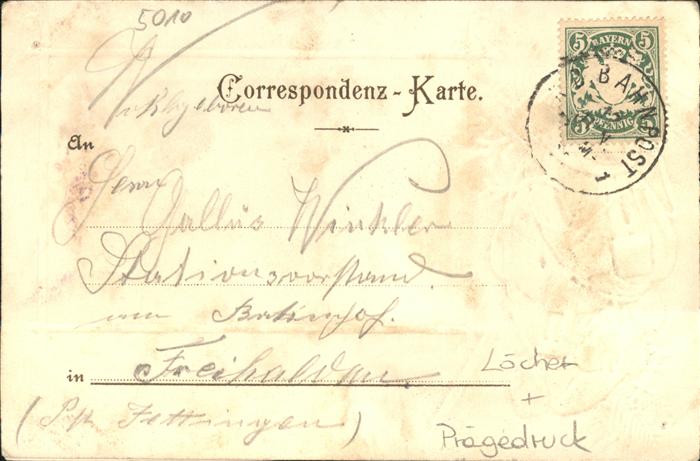 5010
BAYERN
5 5
5 5
PFENNIG
BAHNPOST
Correspondenz - Karte.
An
Herrn
Gallus Winkler
Stationsvorstand
am Bahnhof.
in Freihalden.
Löcher
+
(Pst Jettingen)
Prägedruck